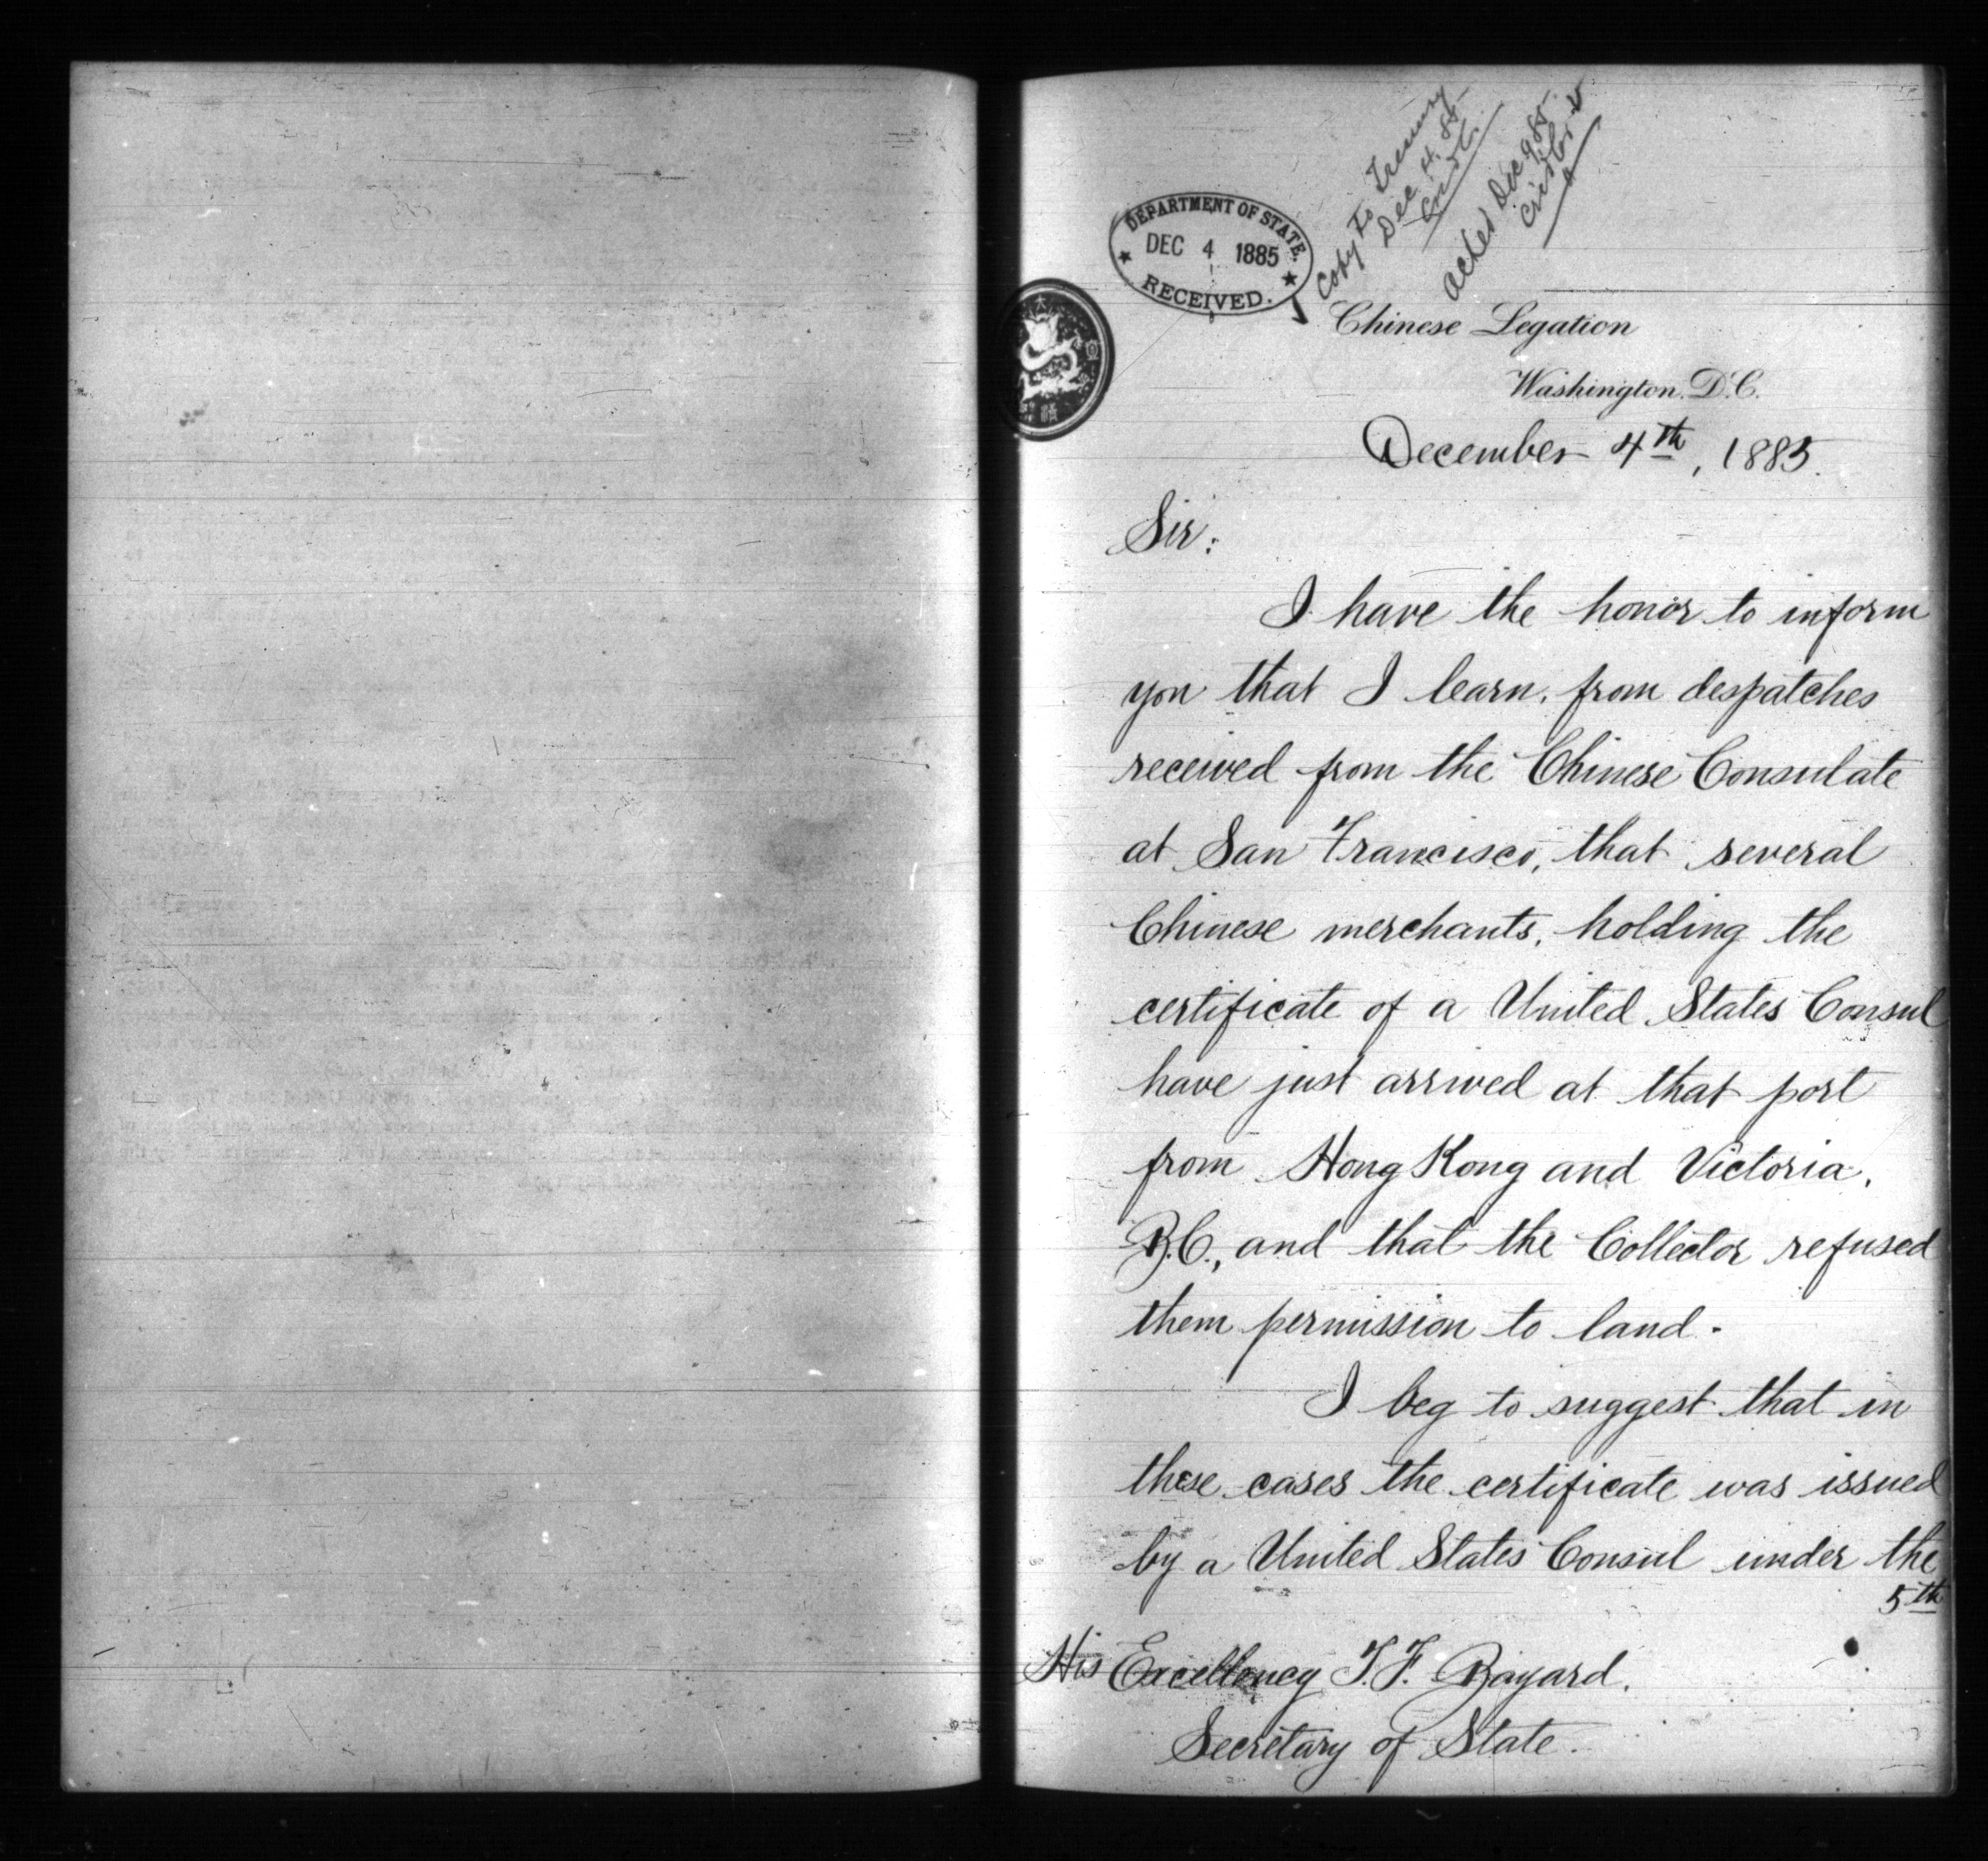 Copy to Treasury
Dec 4. 85
Acked Dec 9 85
DEPARTMENT OF STATE.
DEC 4 1885
RECEIVED.
Chinese Legation
Washington. D.C.
December 4th, 1885.
Sir:
I have the honor to inform
you that I learn, from despatches
received from the Chinese Consulate
at San Francisco, that several
Chinese merchants, holding the
certificate of a United States Consul
have just arrived at that port
from Hong Kong and Victoria,
B.C., and that the Collector refused
them permission to land.
I beg to suggest that in
these cases the certificate was issued
by a United States Consul under the
5th
His Excellency T. F. Bayard,
Secretary of State.